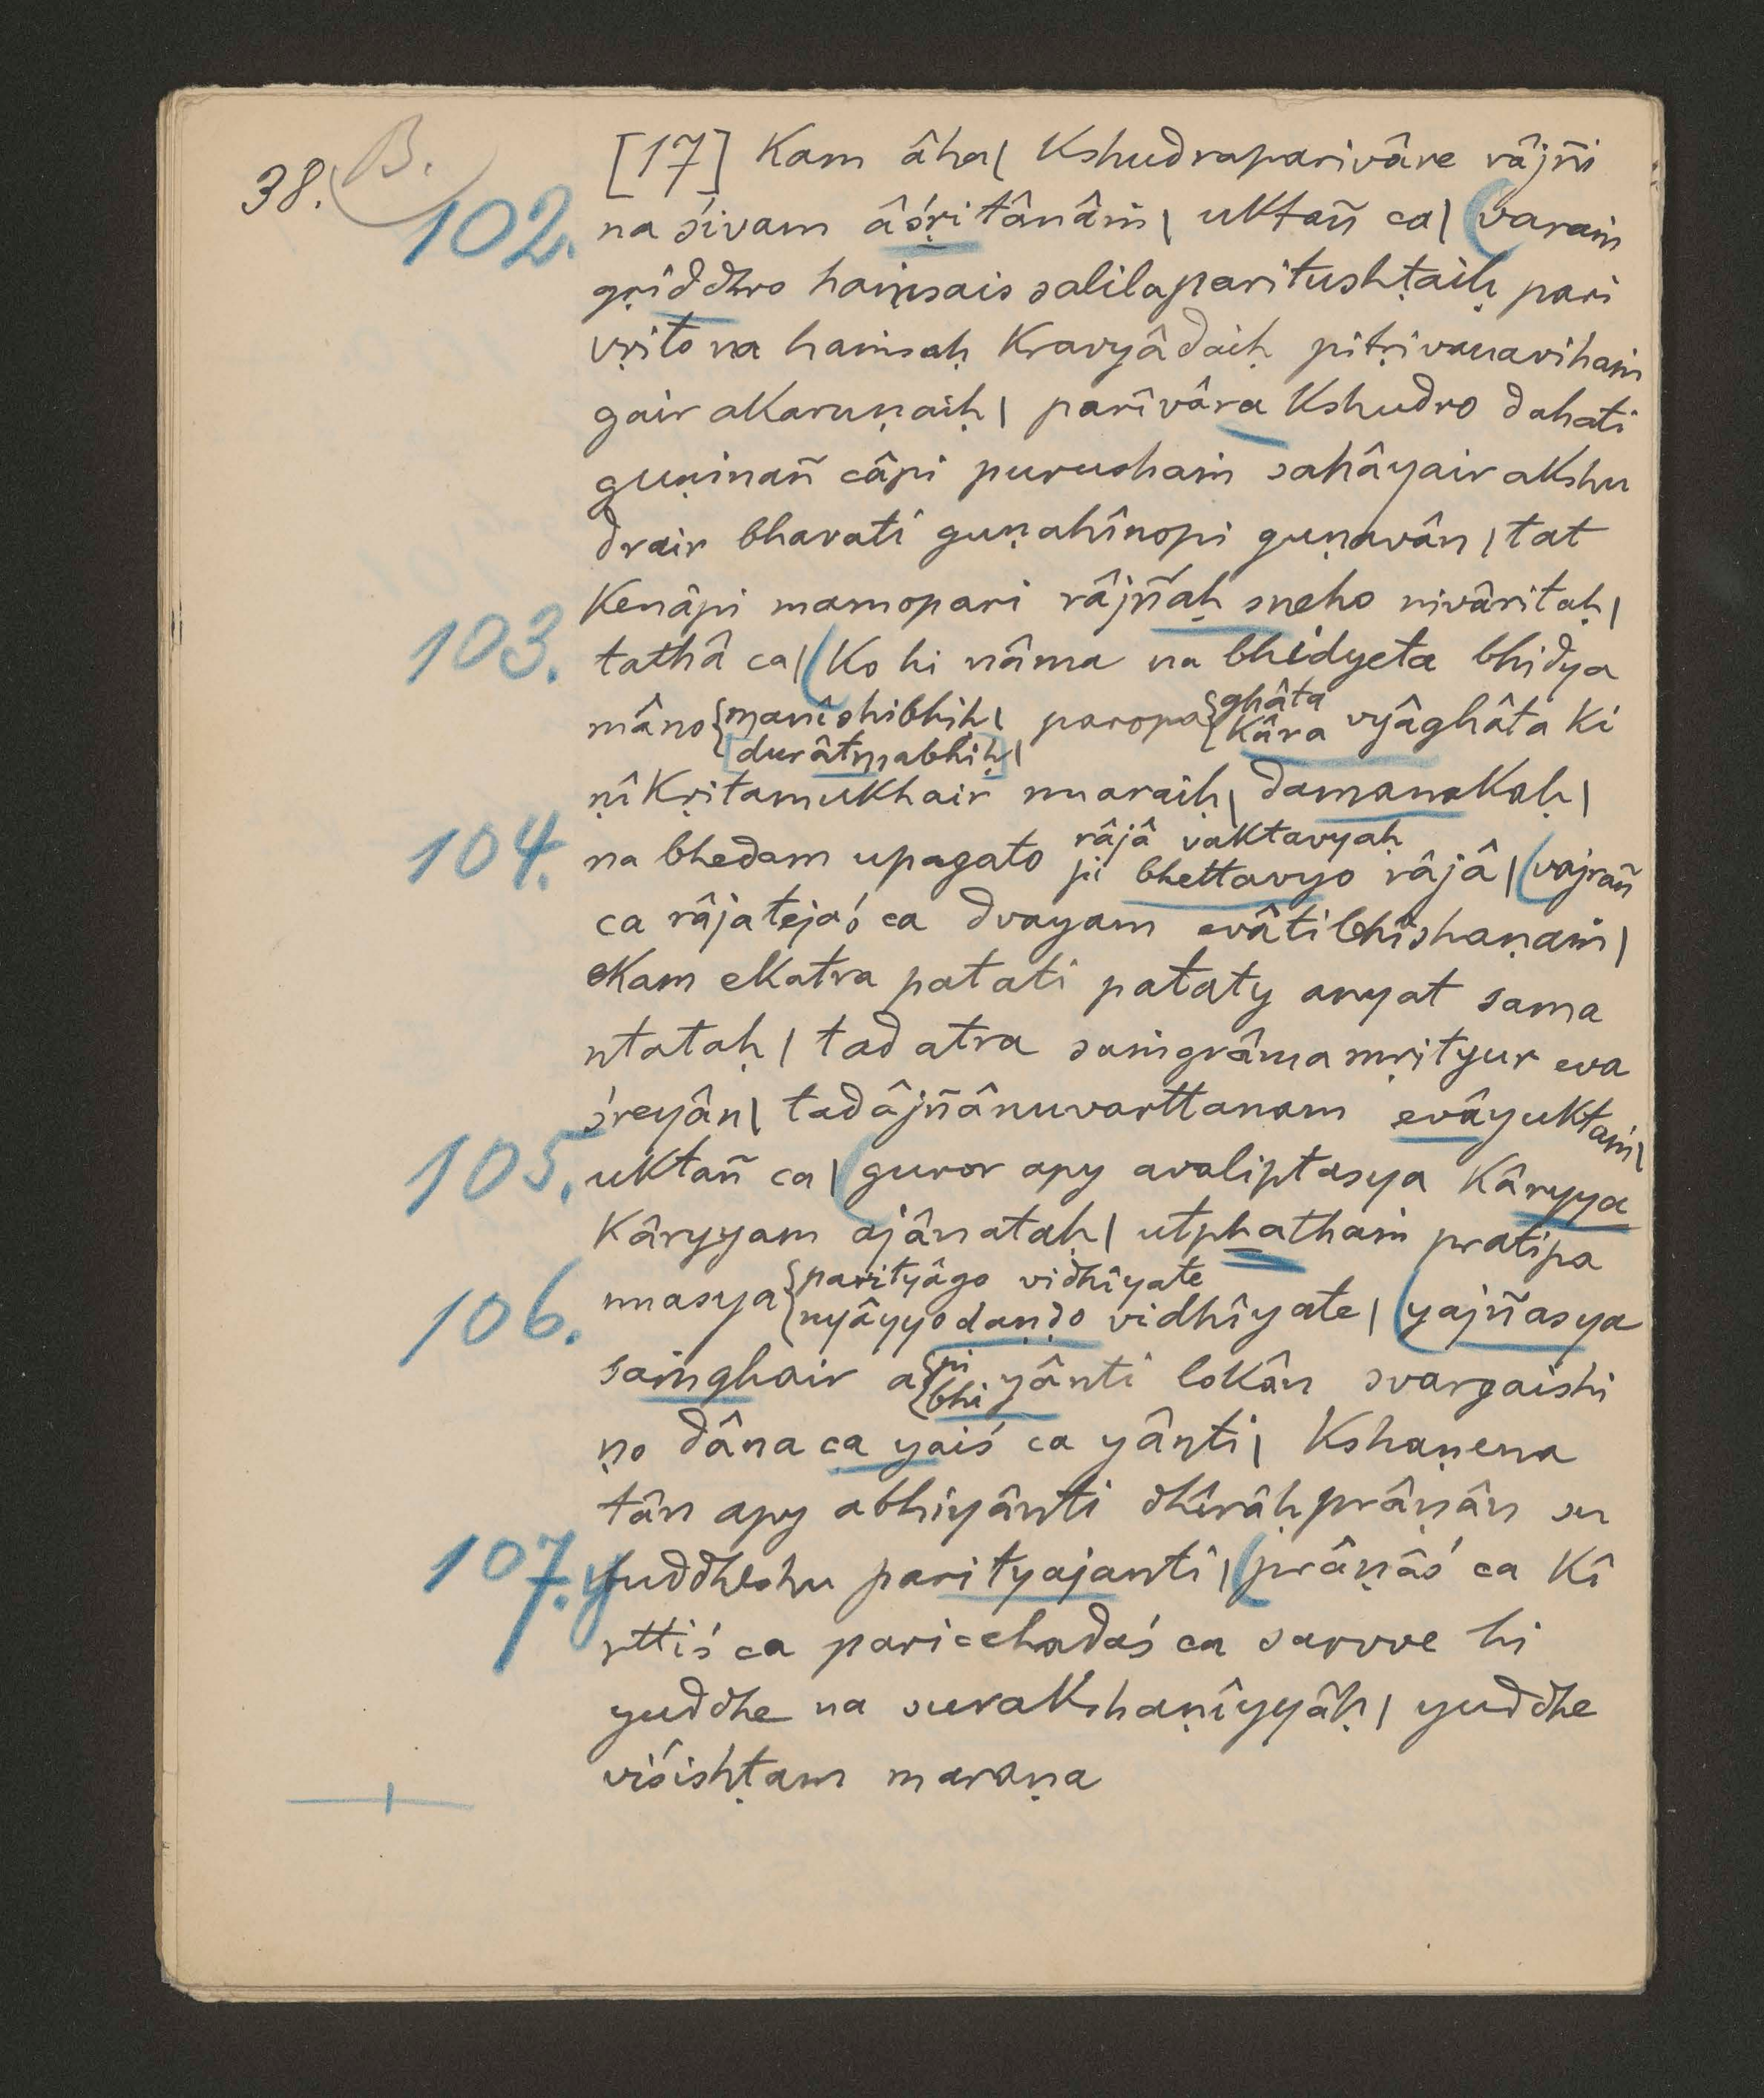 38. B.
[17] Kam âha| Kshudraparivâre râjñi
102. na śivam âśṛitânâṁ| uktañ ca| (varaṁ
gṛiddhro haṁsais salilaparitushṭaiḥ pari
vṛito na haṁsaḥ Kravyâdaiḥ pitṛivanavihaṁ
gair akaruṇaiḥ| parîvâra Kshudro dahati
guṇinañ câpi purushaṁ sahâyair akshu
drair bhavati guṇahînopi guṇavân| tat
Kenâpi mamopari râjñaḥ sneho nivâritaḥ|
103. tathâ ca| (Ko hi nâma na bhidyeta bhidya
mâno {manîshibhiḥ| paropa {ghâta
[durâtmabhiḥ]| Kâra vyâghâta Ki
ṇîKṛitamukhair nnaraiḥ| damanakaḥ|
râjâ vaktavyaḥ
104. na bhedam upagato pi bhettavyo râjâ| (vajrañ
ca râjatejaś ca dvayam evâtibhîshaṇaṁ|
ekam ekatra patati pataty anyat sama
ntataḥ| tad atra saṁgrâmamṛityur eva
śreyân| tadâjñânuvarttanam evâyuktaṁ|
105. uktañ ca| (guror apy avaliptasya Kâryya
Kâryyam ajânataḥ| utphathaṁ pratipa
nnasya {parityâgo vidhîyate
106. nyâyyo daṇḍo vidhîyate| (yajñasya
saṁghair a{pi
bhi yânti lokân svargaishi
ṇo dâna ca yaiś ca yânti| Kshaṇena
tân apy abhiyânti dhîrâḥ prâṇân su
107. yuddheshu parityajanti| (prâṇâś ca Kî
rttiś ca paricchadaś ca sarvve hi
yuddhe na surakshaṇîyyâḥ| yuddhe
viśishṭam maraṇa